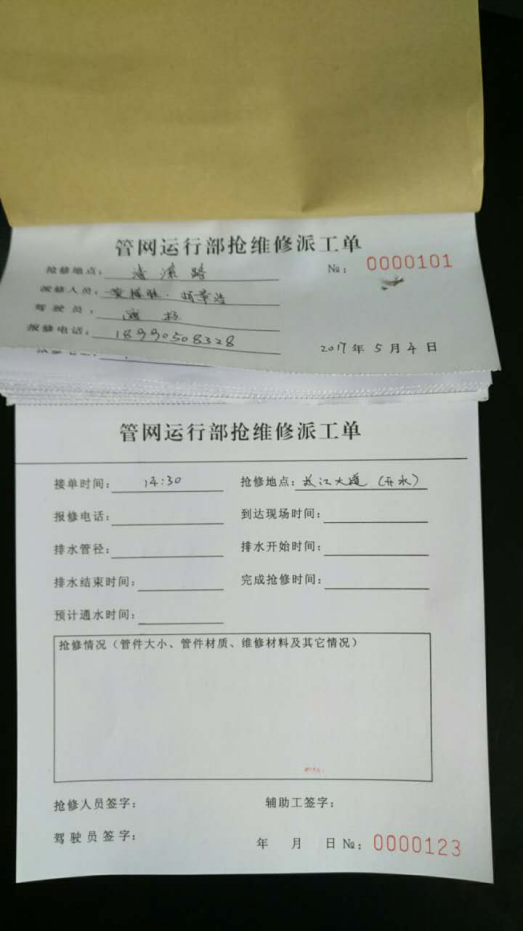 管网运行部抢维修派工单
抢修地点： 路 №： 0000101
报修人员：
驾驶员：
报修电话： 18990508328
2017年5月4日
管网运行部抢维修派工单
接单时间： 14:30 抢修地点：长江大道（开水）
报修电话： 到达现场时间：
排水管径： 排水开始时间：
排水结束时间： 完成抢修时间：
预计通水时间：
抢修情况（管件大小、管件材质、维修材料及其它情况）
抢修人员签字： 辅助工签字：
驾驶员签字： 年 月 日 №： 0000123